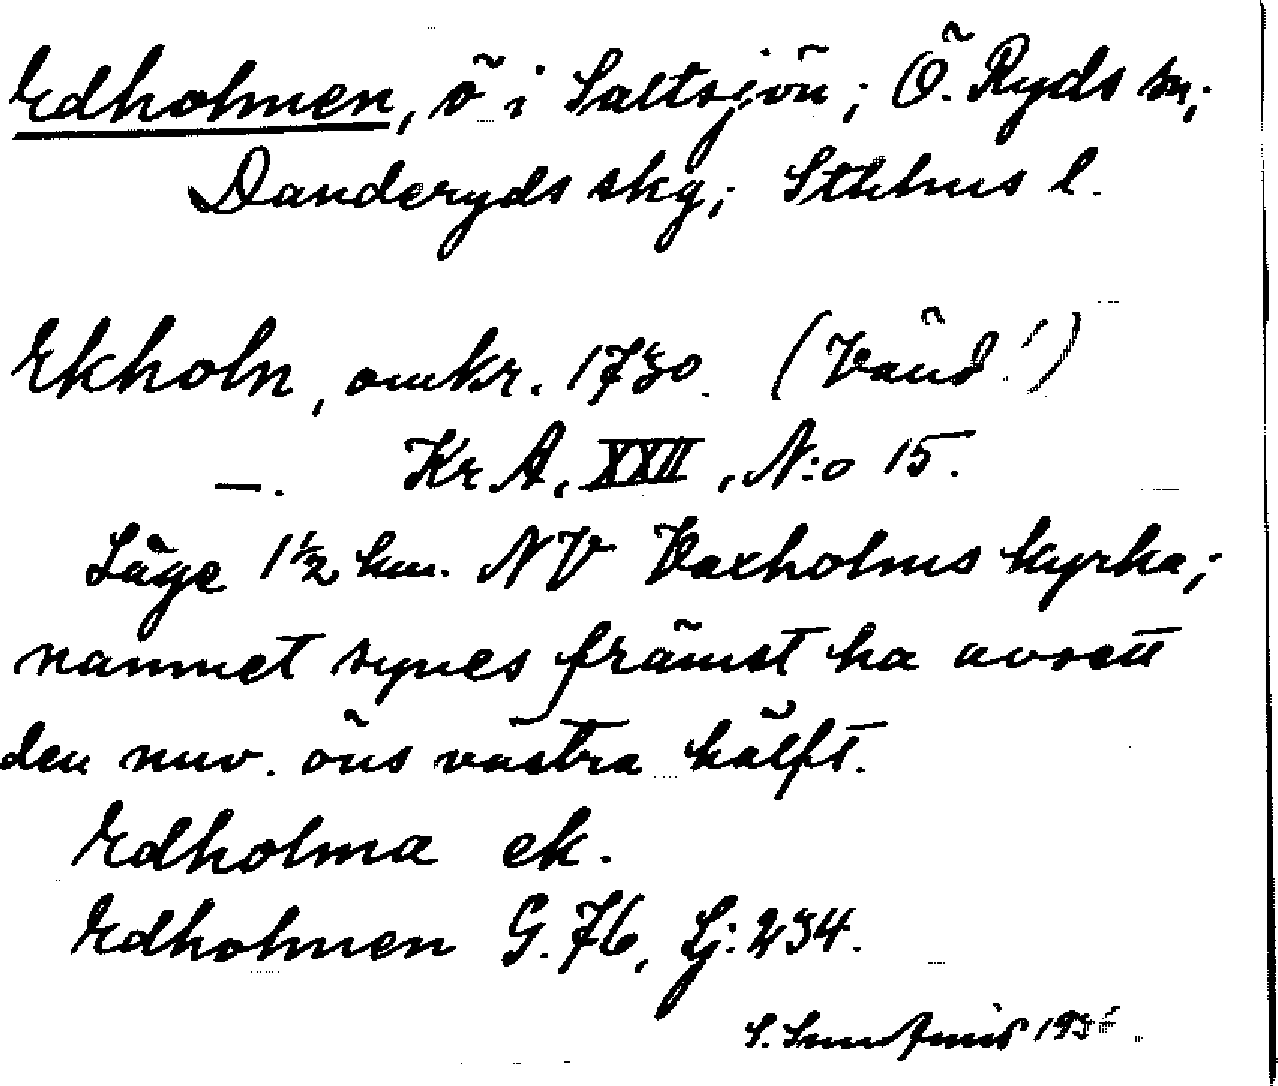 Edholmen, ö i Saltsjön; Ö. Ryds sn;
Danderyds skg; Sthlms l.
Ekholm, omkr. 1730. (Vänd!)
—. Kr A, XXII, N:o 15.
Läge 1½ km. NV Vaxholms kyrka;
namnet synes främst ha avsett
den nuv. öns västra hälft.
Edholma ek.
Edholmen G. 76, Lj: 234.
S. 193